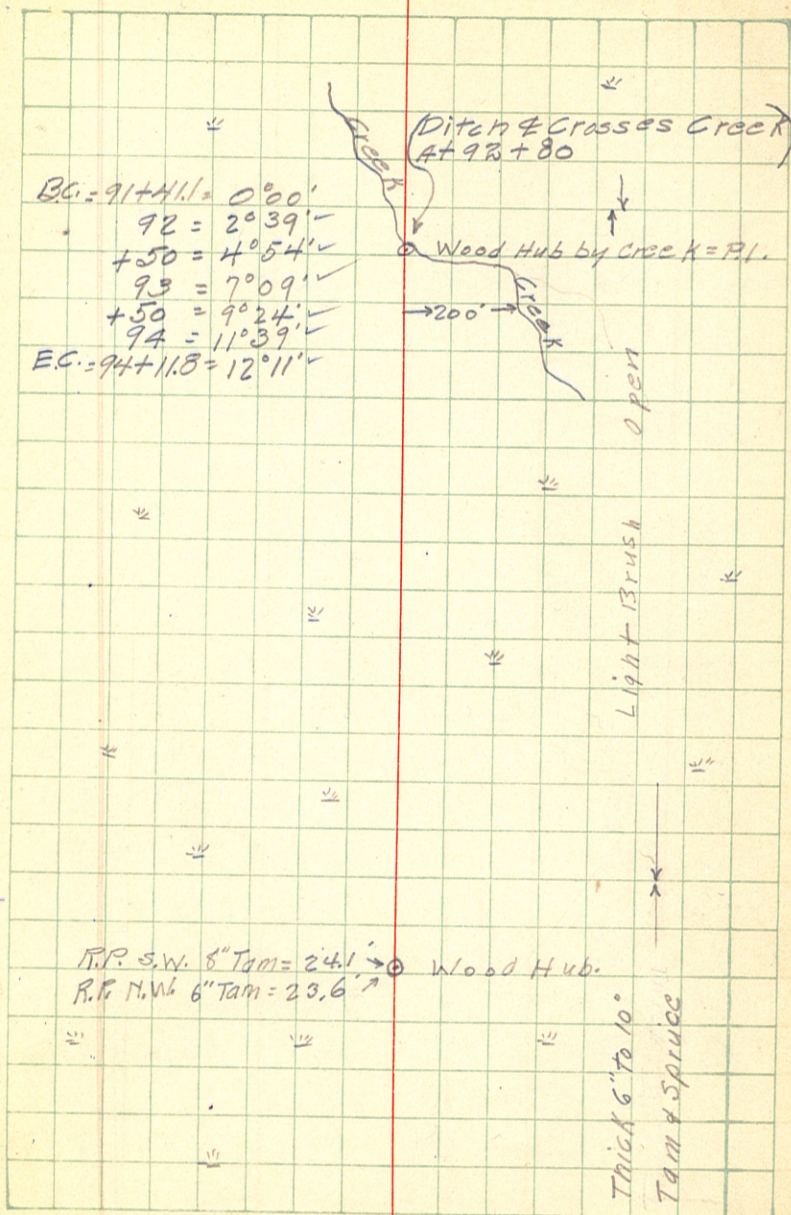 Creek
(Ditch ₵ Crosses Creek)
At 92+80
B.C. = 91+41.1 = 0°00'
92 = 2°39' ✓
+50 = 4°54' ✓
93 = 7°09' ✓
+50 = 9°24' ✓
94 = 11°39' ✓
E.C. = 94+11.8 = 12°11' ✓
Wood Hub by Creek = P.I.
→200'→
Creek
Open
Light Brush
R.P. S.W. 8" Tam = 24.1'
R.P. N.W. 6" Tam = 23.6'
Wood Hub.
Thick 6" to 10"
Tam & Spruce